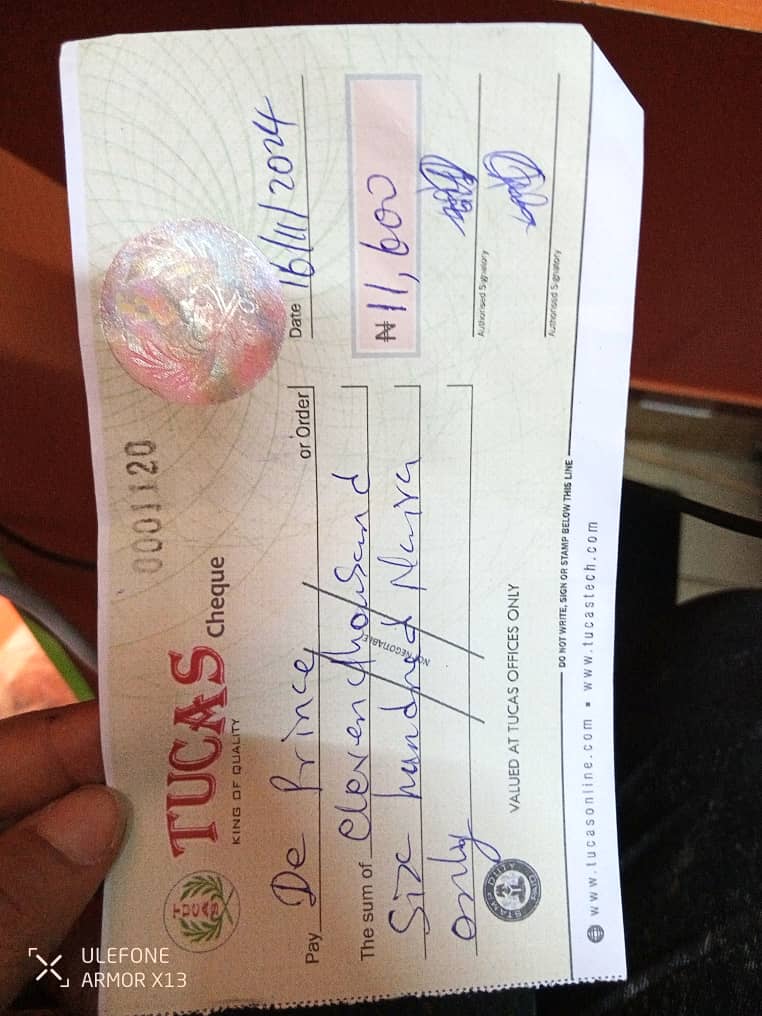 0001120
TUCAS Cheque
KING OF QUALITY
TUCAS
Date 16/11/2024
Pay De Prince or Order
The sum of Eleven thousand
Six hundred Naira
only
₦ 11,600
NOT NEGOTIABLE
Authorised Signatory
Authorised Signatory
STAMP DUTY
VALUED AT TUCAS OFFICES ONLY
DO NOT WRITE, SIGN OR STAMP BELOW THIS LINE
www.tucasonline.com ▪ www.tucastech.com
ULEFONE
ARMOR X13